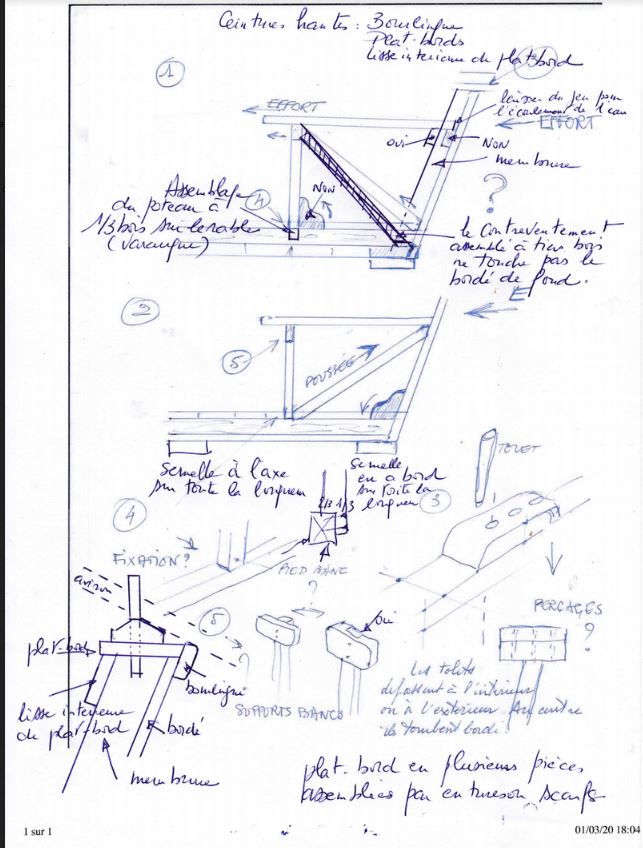 Ceintures hautes : Bourlingue
Plat-bords
lisse interieure du platbord
1
EFFORT
laisser du jeu pour
l'écoulement de l'eau
EFFORT
oui
NON
membrure
?
Assemblage
du poteau à
1/3 bois sur les
(varangue)
4
NON
le contreventement
assemblé à tiers bois
ne touche pas le
bordé de fond.
2
E
5
POUSSÉE
Semelle à l'axe
sur toute la longueur
Semelle
en abord
sur toute la
longueur
3
TOLET
4
2/3 1/3
FIXATION?
PIED BANC
?
aviron
PERCAGES
?
5
oui
plat-bord
bourlingue
?
SUPPORTS BANCS
lisse interieure
du plat-bord
bordé
membrure
Les tolets
à l'intérieur
ou à l'extérieur. Au centre
ils tombent bordé.
plat-bord en plusieurs pièces
assemblées par en scarfs
1 sur 1
01/03/20 18:04